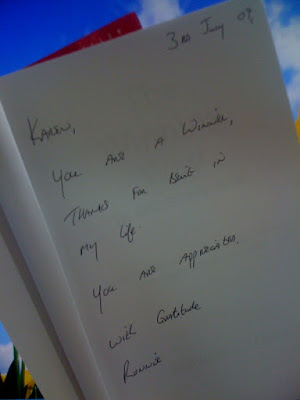 3rd July 09
Karen,
You are a Winner,
Thanks for being in
my life.
You are appreciated.
with Gratitude
Ronnie